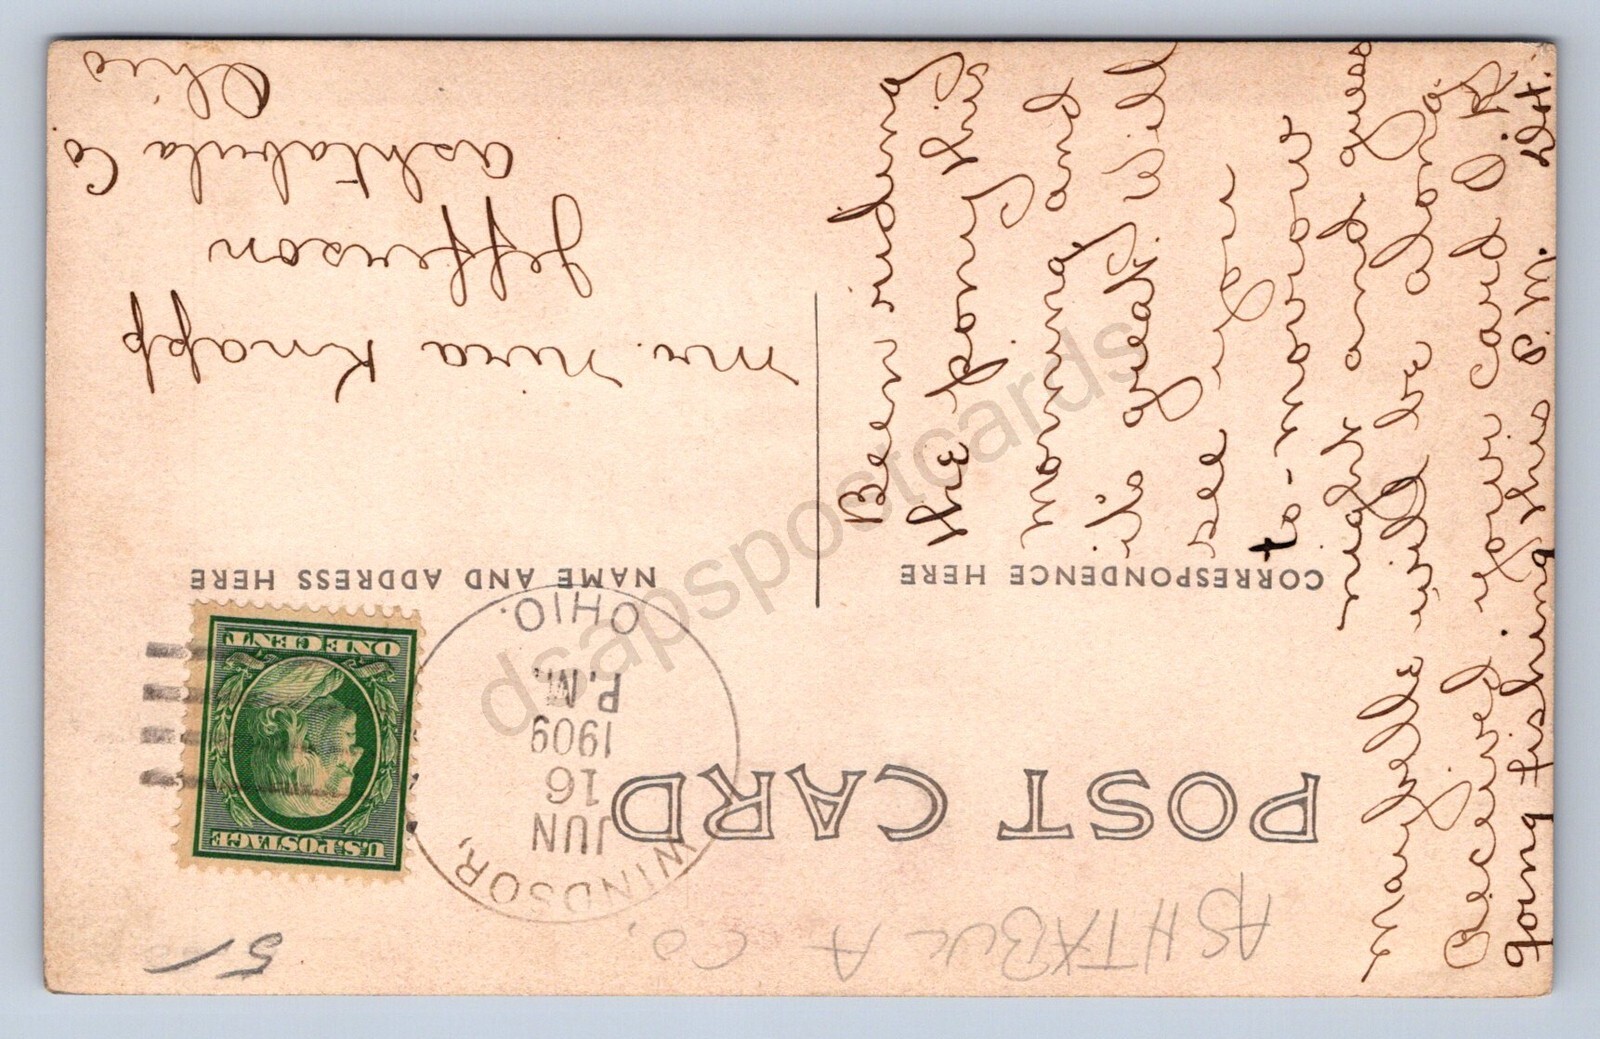 POST CARD
ASHTABULA CO,
51
WINDSOR,
OHIO.
JUN
16
1909
P.M.
U.S. POSTAGE
ONE CENT
CORRESPONDENCE HERE
NAME AND ADDRESS HERE
Been riding
the pony this
morning and
it's great. Will
see you
to-morrow
night and guess
Maybelle will be along.
Received your card O.K.
going fishing this P.M.
Mr. Nira Knapp
Jefferson
Ashtabula Co
Ohio
dsapspostcards